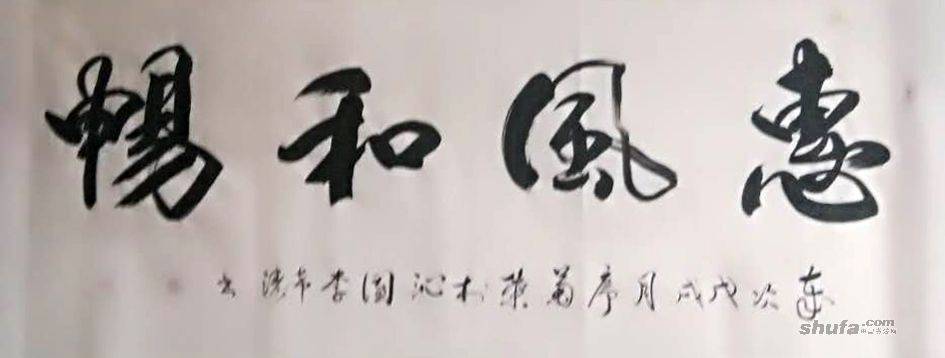 惠風和暢
岁次戊戌月序菊荣於沁園李书
shufa.com